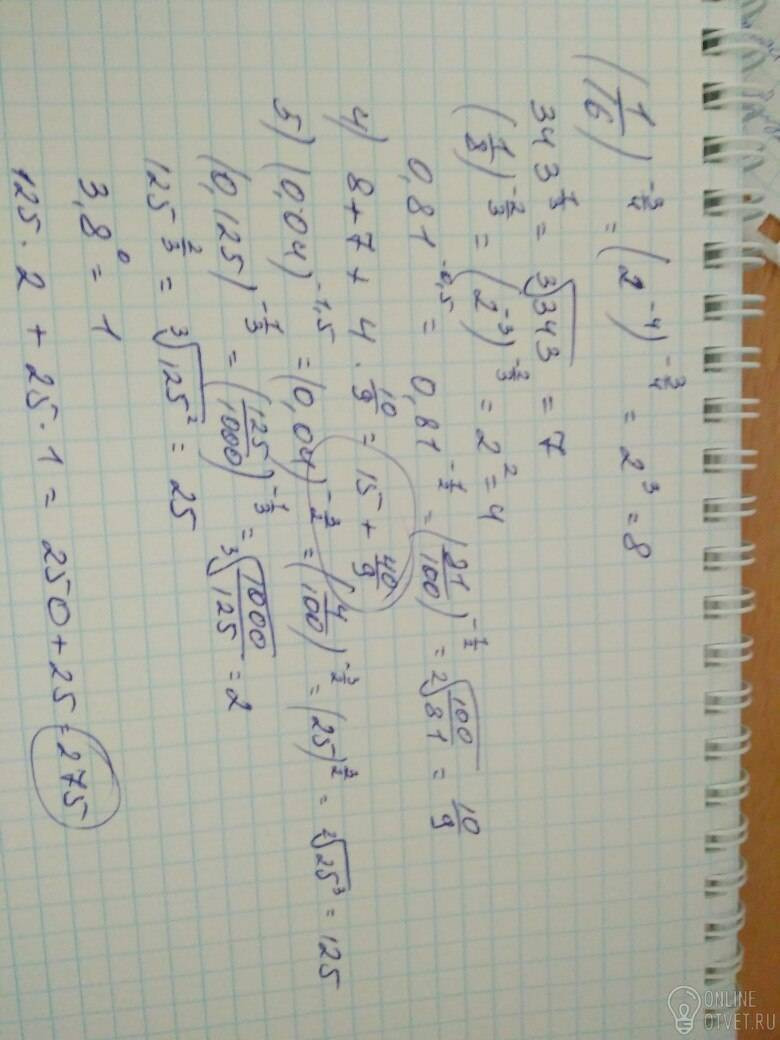 (1/16)^(-3/4) = (2^(-4))^(-3/4) = 2^3 = 8
343^(1/3) = ∛343 = 7
(1/8)^(-2/3) = (2^(-3))^(-2/3) = 2^2 = 4
0,81^(-0,5) = 0,81^(-1/2) = (81/100)^(-1/2) = ²√(100/81) = 10/9
4) 8 + 7 + 4 · 10/9 = 15 + 40/9
5) (0,04)^(-1,5) = (0,04)^(-3/2) = (4/100)^(-3/2) = (25)^(3/2) = ²√(25^3) = 125
(0,125)^(-1/3) = (125/1000)^(-1/3) = ∛(1000/125) = 2
125^(2/3) = ∛(125^2) = 25
3,8^0 = 1
125 · 2 + 25 · 1 = 250 + 25 = 275
ONLINE
OTVET.RU